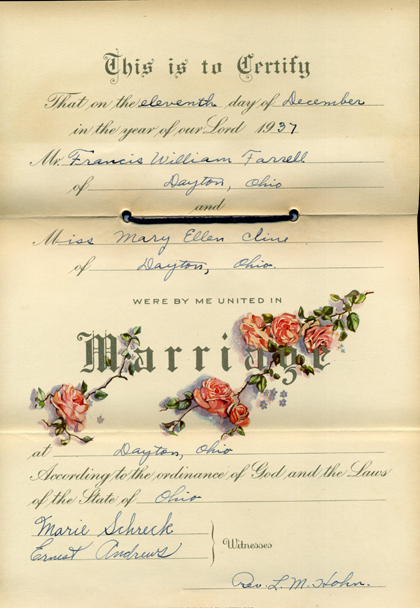 This is to Certify
That on the eleventh day of December
in the year of our Lord 1937
Mr. Francis William Farrell
of Dayton, Ohio
and
Miss Mary Ellen Cline
of Dayton, Ohio.
WERE BY ME UNITED IN
Marriage
at Dayton, Ohio
According to the ordinance of God and the Laws
of the State of Ohio
Marie Schreck
Ernest Andrews
Witnesses
Rev. L. M. Hohn.